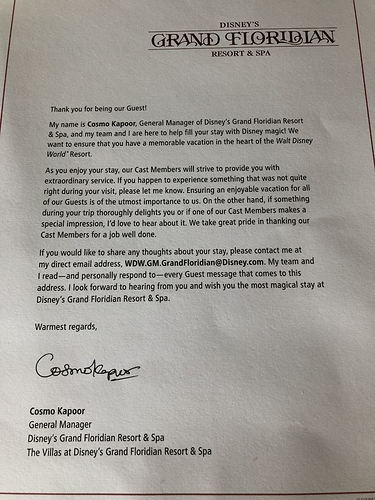 DISNEY'S
GRAND FLORIDIAN
RESORT & SPA
Thank you for being our Guest!
My name is Cosmo Kapoor, General Manager of Disney's Grand Floridian Resort
& Spa, and my team and I are here to help fill your stay with Disney magic! We
want to ensure that you have a memorable vacation in the heart of the Walt Disney
World® Resort.
As you enjoy your stay, our Cast Members will strive to provide you with
extraordinary service. If you happen to experience something that was not quite
right during your visit, please let me know. Ensuring an enjoyable vacation for all
of our Guests is of the utmost importance to us. On the other hand, if something
during your trip thoroughly delights you or if one of our Cast Members makes a
special impression, I'd love to hear about it. We take great pride in thanking our
Cast Members for a job well done.
If you would like to share any thoughts about your stay, please contact me at
my direct email address, WDW.GM.GrandFloridian@Disney.com. My team and
I read—and personally respond to—every Guest message that comes to this
address. I look forward to hearing from you and wish you the most magical stay at
Disney's Grand Floridian Resort & Spa.
Warmest regards,
Cosmo Kapoor
Cosmo Kapoor
General Manager
Disney's Grand Floridian Resort & Spa
The Villas at Disney's Grand Floridian Resort & Spa